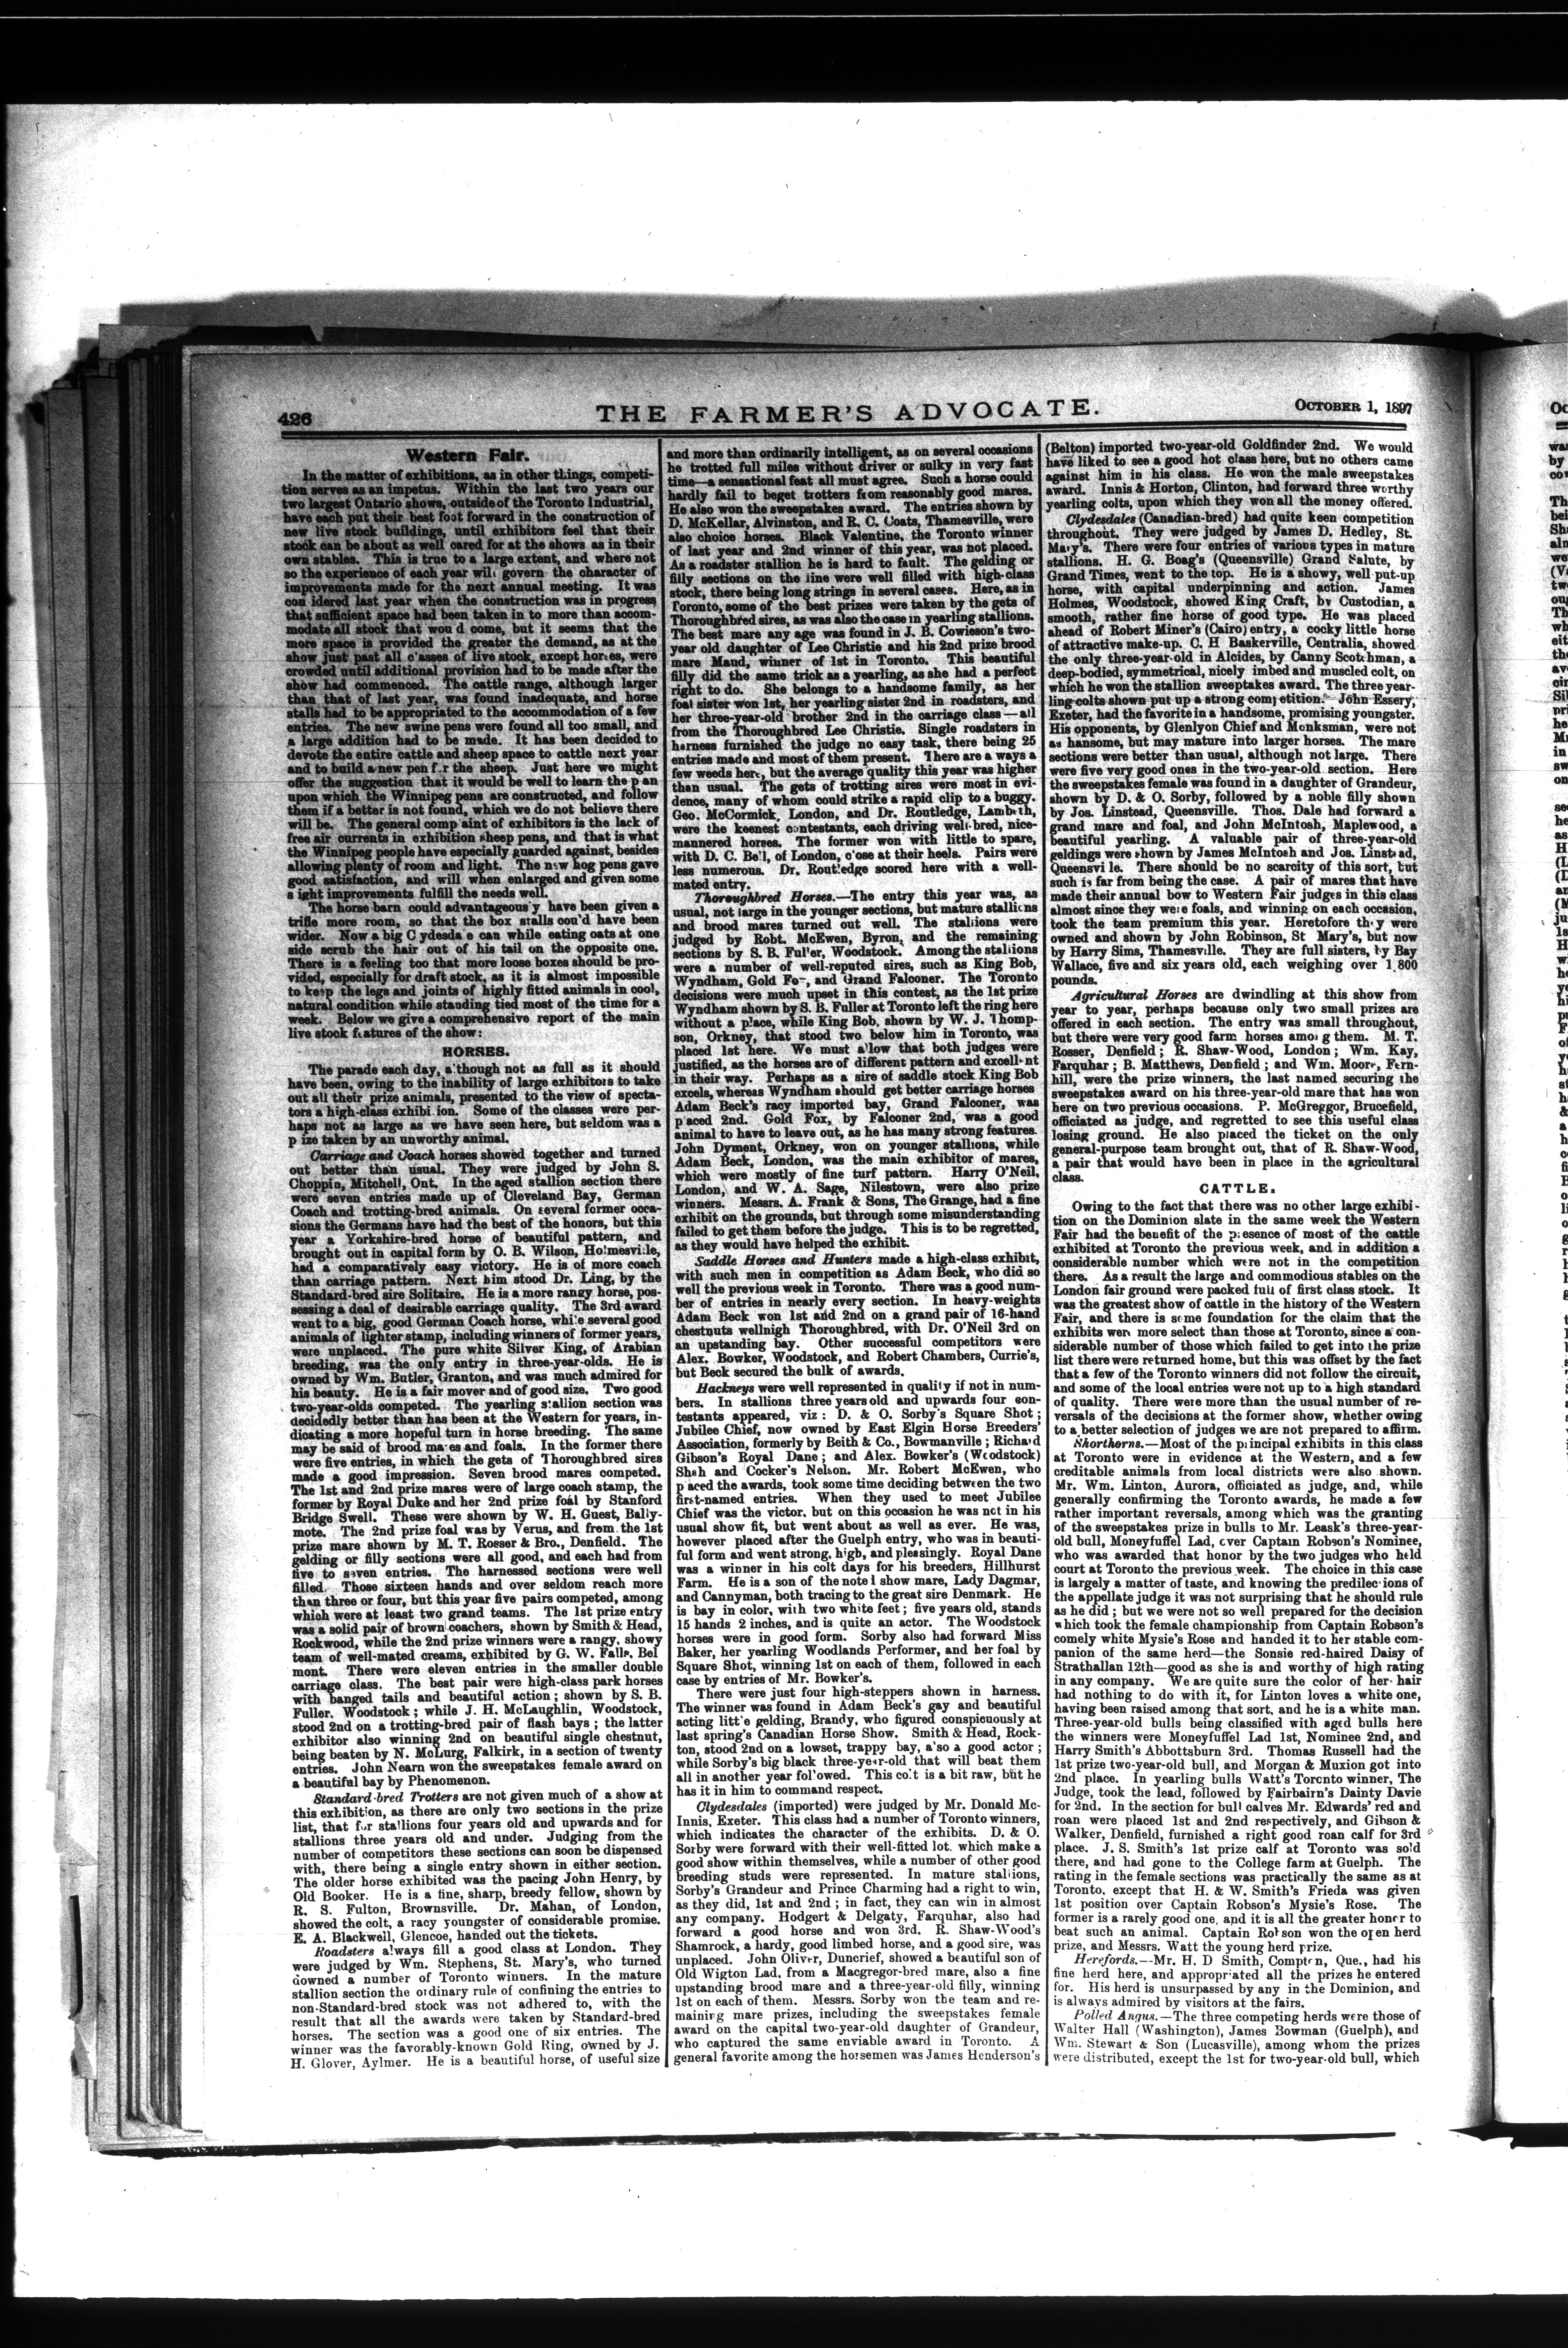 426
THE FARMER'S ADVOCATE.
OCTOBER 1, 1897
Western Fair.
In the matter of exhibitions, as in other things, competi-
tion serves as an impetus. Within the last two years our
two largest Ontario shows, outside of the Toronto Industrial,
have each put their best foot forward in the construction of
new live stock buildings, until exhibitors feel that their
stock can be about as well cared for at the shows as in their
own stables. This is true to a large extent, and where not
so the experience of each year will govern the character of
improvements made for the next annual meeting. It was
con idered last year when the construction was in progress
that sufficient space had been taken in to more than accom-
modate all stock that wou d come, but it seems that the
more space is provided the greater the demand, as at the
show just past all c'asses of live stock, except horses, were
crowded until additional provision had to be made after the
show had commenced. The cattle range, although larger
than that of last year, was found inadequate, and horse
stalls had to be appropriated to the accommodation of a few
entries. The new swine pens were found all too small, and
a large addition had to be made. It has been decided to
devote the entire cattle and sheep space to cattle next year
and to build a new pen f.r the sheep. Just here we might
offer the suggestion that it would be well to learn the p an
upon which the Winnipeg pens are constructed, and follow
them if a better is not found, which we do not believe there
will be. The general comp aint of exhibitors is the lack of
free air currents in exhibition sheep pens, and that is what
the Winnipeg people have especially guarded against, besides
allowing plenty of room and light. The new hog pens gave
good satisfaction, and will when enlarged and given some
s ight improvements fulfill the needs well.
The horse barn could advantageous'y have been given a
trifle more room, so that the box stalls cou'd have been
wider. Now a big C ydesda e can while eating oats at one
side scrub the hair out of his tail on the opposite one.
There is a feeling too that more loose boxes should be pro-
vided, especially for draft stock, as it is almost impossible
to keep the legs and joints of highly fitted animals in cool,
natural condition while standing tied most of the time for a
week. Below we give a comprehensive report of the main
live stock features of the show:
HORSES.
The parade each day, a'though not as full as it should
have been, owing to the inability of large exhibitors to take
out all their prize animals, presented to the view of specta-
tors a high-class exhibi.ion. Some of the classes were per-
haps not as large as we have seen here, but seldom was a
p ize taken by an unworthy animal.
Carriage and Coach horses showed together and turned
out better than usual. They were judged by John S.
Choppin, Mitchell, Ont. In the aged stallion section there
were seven entries made up of Cleveland Bay, German
Coach and trotting-bred animals. On several former occa-
sions the Germans have had the best of the honors, but this
year a Yorkshire-bred horse of beautiful pattern, and
brought out in capital form by O. B. Wilson, Ho!mesville,
had a comparatively easy victory. He is of more coach
than carriage pattern. Next him stood Dr. Ling, by the
Standard-bred sire Solitaire. He is a more rangy horse, pos-
sessing a deal of desirable carriage quality. The 3rd award
went to a big, good German Coach horse, while several good
animals of lighter stamp, including winners of former years,
were unplaced. The pure white Silver King, of Arabian
breeding, was the only entry in three-year-olds. He is
owned by Wm. Butler, Granton, and was much admired for
his beauty. He is a fair mover and of good size. Two good
two-year-olds competed. The yearling stallion section was
decidedly better than has been at the Western for years, in-
dicating a more hopeful turn in horse breeding. The same
may be said of brood mares and foals. In the former there
were five entries, in which the gets of Thoroughbred sires
made a good impression. Seven brood mares competed.
The 1st and 2nd prize mares were of large coach stamp, the
former by Royal Duke and her 2nd prize foal by Stanford
Bridge Swell. These were shown by W. H. Guest, Bally-
mote. The 2nd prize foal was by Verus, and from the 1st
prize mare shown by M. T. Rosser & Bro., Denfield. The
gelding or filly sections were all good, and each had from
five to seven entries. The harnessed sections were well
filled. Those sixteen hands and over seldom reach more
than three or four, but this year five pairs competed, among
which were at least two grand teams. The 1st prize entry
was a solid pair of brown coachers, shown by Smith & Head,
Rockwood, while the 2nd prize winners were a rangy, showy
team of well-mated creams, exhibited by G. W. Falls, Bel
mont. There were eleven entries in the smaller double
carriage class. The best pair were high-class park horses
with banged tails and beautiful action; shown by S. B.
Fuller, Woodstock; while J. H. McLaughlin, Woodstock,
stood 2nd on a trotting-bred pair of flash bays; the latter
exhibitor also winning 2nd on beautiful single chestnut,
being beaten by N. McLurg, Falkirk, in a section of twenty
entries. John Nearn won the sweepstakes female award on
a beautiful bay by Phenomenon.
Standard-bred Trotters are not given much of a show at
this exhibition, as there are only two sections in the prize
list, that for stallions four years old and upwards and for
stallions three years old and under. Judging from the
number of competitors these sections can soon be dispensed
with, there being a single entry shown in either section.
The older horse exhibited was the pacing John Henry, by
Old Booker. He is a fine, sharp, breedy fellow, shown by
R. S. Fulton, Brownsville. Dr. Mahan, of London,
showed the colt, a racy youngster of considerable promise.
E. A. Blackwell, Glencoe, handed out the tickets.
Roadsters always fill a good class at London. They
were judged by Wm. Stephens, St. Mary's, who turned
downed a number of Toronto winners. In the mature
stallion section the ordinary rule of confining the entries to
non-Standard-bred stock was not adhered to, with the
result that all the awards were taken by Standard-bred
horses. The section was a good one of six entries. The
winner was the favorably-known Gold Ring, owned by J.
H. Glover, Aylmer. He is a beautiful horse, of useful size
and more than ordinarily intelligent, as on several occasions
he trotted full miles without driver or sulky in very fast
time—a sensational feat all must agree. Such a horse could
hardly fail to beget trotters from reasonably good mares.
He also won the sweepstakes award. The entries shown by
D. McKellar, Alvinston, and R. C. Coats, Thamesville, were
also choice horses. Black Valentine, the Toronto winner
of last year and 2nd winner of this year, was not placed.
As a roadster stallion he is hard to fault. The gelding or
filly sections on the line were well filled with high-class
stock, there being long strings in several cases. Here, as in
Toronto, some of the best prizes were taken by the gets of
Thoroughbred sires, as was also the case in yearling stallions.
The best mare any age was found in J. B. Cowieson's two-
year old daughter of Lee Christie and his 2nd prize brood
mare Maud, winner of 1st in Toronto. This beautiful
filly did the same trick as a yearling, as she had a perfect
right to do. She belongs to a handsome family, as her
foal sister won 1st, her yearling sister 2nd in roadsters, and
her three-year-old brother 2nd in the carriage class—all
from the Thoroughbred Lee Christie. Single roadsters in
harness furnished the judge no easy task, there being 25
entries made and most of them present. There are a ways a
few weeds here, but the average quality this year was higher
than usual. The gets of trotting sires were most in evi-
dence, many of whom could strike a rapid clip to a buggy.
Geo. McCormick, London, and Dr. Routledge, Lambeth,
were the keenest contestants, each driving well-bred, nice-
mannered horses. The former won with little to spare,
with D. C. Bell, of London, c'ose at their heels. Pairs were
less numerous. Dr. Routledge scored here with a well-
mated entry.
Thoroughbred Horses.—The entry this year was, as
usual, not large in the younger sections, but mature stallions
and brood mares turned out well. The stallions were
judged by Robt. McEwen, Byron, and the remaining
sections by S. B. Ful'er, Woodstock. Among the stallions
were a number of well-reputed sires, such as King Bob,
Wyndham, Gold Fo-, and Grand Falconer. The Toronto
decisions were much upset in this contest, as the 1st prize
Wyndham shown by S. B. Fuller at Toronto left the ring here
without a place, while King Bob, shown by W. J. Thomp-
son, Orkney, that stood two below him in Toronto, was
placed 1st here. We must a'low that both judges were
justified, as the horses are of different pattern and excellent
in their way. Perhaps as a sire of saddle stock King Bob
excels, whereas Wyndham should get better carriage horses
Adam Beck's racy imported bay, Grand Falconer, was
p'aced 2nd. Gold Fox, by Falconer 2nd, was a good
animal to have to leave out, as he has many strong features.
John Dyment, Orkney, won on younger stallions, while
Adam Beck, London, was the main exhibitor of mares,
which were mostly of fine turf pattern. Harry O'Neil,
London, and W. A. Sage, Nilestown, were also prize
winners. Messrs. A. Frank & Sons, The Grange, had a fine
exhibit on the grounds, but through some misunderstanding
failed to get them before the judge. This is to be regretted,
as they would have helped the exhibit.
Saddle Horses and Hunters made a high-class exhibit,
with such men in competition as Adam Beck, who did so
well the previous week in Toronto. There was a good num-
ber of entries in nearly every section. In heavy-weights
Adam Beck won 1st and 2nd on a grand pair of 16-hand
chestnuts wellnigh Thoroughbred, with Dr. O'Neil 3rd on
an upstanding bay. Other successful competitors were
Alex. Bowker, Woodstock, and Robert Chambers, Currie's,
but Beck secured the bulk of awards.
Hackneys were well represented in quality if not in num-
bers. In stallions three years old and upwards four con-
testants appeared, viz: D. & O. Sorby's Square Shot;
Jubilee Chief, now owned by East Elgin Horse Breeders'
Association, formerly by Beith & Co., Bowmanville; Richard
Gibson's Royal Dane; and Alex. Bowker's (Woodstock)
Shah and Cocker's Nelson. Mr. Robert McEwen, who
p aced the awards, took some time deciding between the two
first-named entries. When they used to meet Jubilee
Chief was the victor, but on this occasion he was not in his
usual show fit, but went about as well as ever. He was,
however placed after the Guelph entry, who was in beauti-
ful form and went strong, high, and pleasingly. Royal Dane
was a winner in his colt days for his breeders, Hillhurst
Farm. He is a son of the note l show mare, Lady Dagmar,
and Cannyman, both tracing to the great sire Denmark. He
is bay in color, with two white feet; five years old, stands
15 hands 2 inches, and is quite an actor. The Woodstock
horses were in good form. Sorby also had forward Miss
Baker, her yearling Woodlands Performer, and her foal by
Square Shot, winning 1st on each of them, followed in each
case by entries of Mr. Bowker's.
There were just four high-steppers shown in harness.
The winner was found in Adam Beck's gay and beautiful
acting litt'e gelding, Brandy, who figured conspicuously at
last spring's Canadian Horse Show. Smith & Head, Rock-
ton, stood 2nd on a lowset, trappy bay, a'so a good actor;
while Sorby's big black three-year-old that will beat them
all in another year fol'owed. This colt is a bit raw, but he
has it in him to command respect.
Clydesdales (imported) were judged by Mr. Donald Mc-
Innis, Exeter. This class had a number of Toronto winners,
which indicates the character of the exhibits. D. & O.
Sorby were forward with their well-fitted lot, which make a
good show within themselves, while a number of other good
breeding studs were represented. In mature stallions,
Sorby's Grandeur and Prince Charming had a right to win,
as they did, 1st and 2nd; in fact, they can win in almost
any company. Hodgert & Delgaty, Farquhar, also had
forward a good horse and won 3rd. R. Shaw-Wood's
Shamrock, a hardy, good limbed horse, and a good sire, was
unplaced. John Oliver, Duncrief, showed a beautiful son of
Old Wigton Lad, from a Macgregor-bred mare, also a fine
upstanding brood mare and a three-year-old filly, winning
1st on each of them. Messrs. Sorby won the team and re-
maining mare prizes, including the sweepstakes female
award on the capital two-year-old daughter of Grandeur,
who captured the same enviable award in Toronto. A
general favorite among the horsemen was James Henderson's
(Belton) imported two-year-old Goldfinder 2nd. We would
have liked to see a good hot class here, but no others came
against him in his class. He won the male sweepstakes
award. Innis & Horton, Clinton, had forward three worthy
yearling colts, upon which they won all the money offered.
Clydesdales (Canadian-bred) had quite keen competition
throughout. They were judged by James D. Hedley, St.
Mary's. There were four entries of various types in mature
stallions. H. G. Boag's (Queensville) Grand Salute, by
Grand Times, went to the top. He is a showy, well put-up
horse, with capital underpinning and action. James
Holmes, Woodstock, showed King Craft, by Custodian, a
smooth, rather fine horse of good type. He was placed
ahead of Robert Miner's (Cairo) entry, a cocky little horse
of attractive make-up. C. H Baskerville, Centralia, showed
the only three-year-old in Alcides, by Canny Scotchman, a
deep-bodied, symmetrical, nicely imbed and muscled colt, on
which he won the stallion sweeptakes award. The three year-
ling colts shown put up a strong competition. John Essery,
Exeter, had the favorite in a handsome, promising youngster.
His opponents, by Glenlyon Chief and Monksman, were not
as hansome, but may mature into larger horses. The mare
sections were better than usual, although not large. There
were five very good ones in the two-year-old section. Here
the sweepstakes female was found in a daughter of Grandeur,
shown by D. & O. Sorby, followed by a noble filly shown
by Jos. Linstead, Queensville. Thos. Dale had forward a
grand mare and foal, and John McIntosh, Maplewood, a
beautiful yearling. A valuable pair of three-year-old
geldings were shown by James McIntosh and Jos. Linstead,
Queensvi le. There should be no scarcity of this sort, but
such is far from being the case. A pair of mares that have
made their annual bow to Western Fair judges in this class
almost since they were foals, and winning on each occasion,
took the team premium this year. Heretofore they were
owned and shown by John Robinson, St Mary's, but now
by Harry Sims, Thamesville. They are full sisters, by Bay
Wallace, five and six years old, each weighing over 1,800
pounds.
Agricultural Horses are dwindling at this show from
year to year, perhaps because only two small prizes are
offered in each section. The entry was small throughout,
but there were very good farm horses among them. M. T.
Rosser, Denfield; R. Shaw-Wood, London; Wm. Kay,
Farquhar; B. Matthews, Denfield; and Wm. Moore, Fern-
hill, were the prize winners, the last named securing the
sweepstakes award on his three-year-old mare that has won
here on two previous occasions. P. McGreggor, Brucefield,
officiated as judge, and regretted to see this useful class
losing ground. He also placed the ticket on the only
general-purpose team brought out, that of R. Shaw-Wood,
a pair that would have been in place in the agricultural
class.
CATTLE.
Owing to the fact that there was no other large exhibi-
tion on the Dominion slate in the same week the Western
Fair had the benefit of the presence of most of the cattle
exhibited at Toronto the previous week, and in addition a
considerable number which were not in the competition
there. As a result the large and commodious stables on the
London fair ground were packed full of first class stock. It
was the greatest show of cattle in the history of the Western
Fair, and there is some foundation for the claim that the
exhibits were more select than those at Toronto, since a con-
siderable number of those which failed to get into the prize
list there were returned home, but this was offset by the fact
that a few of the Toronto winners did not follow the circuit,
and some of the local entries were not up to a high standard
of quality. There were more than the usual number of re-
versals of the decisions at the former show, whether owing
to a better selection of judges we are not prepared to affirm.
Shorthorns.—Most of the principal exhibits in this class
at Toronto were in evidence at the Western, and a few
creditable animals from local districts were also shown.
Mr. Wm. Linton, Aurora, officiated as judge, and, while
generally confirming the Toronto awards, he made a few
rather important reversals, among which was the granting
of the sweepstakes prize in bulls to Mr. Leask's three-year-
old bull, Moneyfuffel Lad, over Captain Robson's Nominee,
who was awarded that honor by the two judges who held
court at Toronto the previous week. The choice in this case
is largely a matter of taste, and knowing the predilections of
the appellate judge it was not surprising that he should rule
as he did; but we were not so well prepared for the decision
which took the female championship from Captain Robson's
comely white Mysie's Rose and handed it to her stable com-
panion of the same herd—the Sonsie red-haired Daisy of
Strathallan 12th—good as she is and worthy of high rating
in any company. We are quite sure the color of her hair
had nothing to do with it, for Linton loves a white one,
having been raised among that sort, and he is a white man.
Three-year-old bulls being classified with aged bulls here
the winners were Moneyfuffel Lad 1st, Nominee 2nd, and
Harry Smith's Abbottsburn 3rd. Thomas Russell had the
1st prize two-year-old bull, and Morgan & Muxion got into
2nd place. In yearling bulls Watt's Toronto winner, The
Judge, took the lead, followed by Fairbairn's Dainty Davie
for 2nd. In the section for bull calves Mr. Edwards' red and
roan were placed 1st and 2nd respectively, and Gibson &
Walker, Denfield, furnished a right good roan calf for 3rd
place. J. S. Smith's 1st prize calf at Toronto was sold
there, and had gone to the College farm at Guelph. The
rating in the female sections was practically the same as at
Toronto, except that H. & W. Smith's Frieda was given
1st position over Captain Robson's Mysie's Rose. The
former is a rarely good one, and it is all the greater honor to
beat such an animal. Captain Robson won the open herd
prize, and Messrs. Watt the young herd prize.
Herefords.—Mr. H. D Smith, Compton, Que., had his
fine herd here, and appropriated all the prizes he entered
for. His herd is unsurpassed by any in the Dominion, and
is always admired by visitors at the fairs.
Polled Angus.—The three competing herds were those of
Walter Hall (Washington), James Bowman (Guelph), and
Wm. Stewart & Son (Lucasville), among whom the prizes
were distributed, except the 1st for two-year-old bull, which